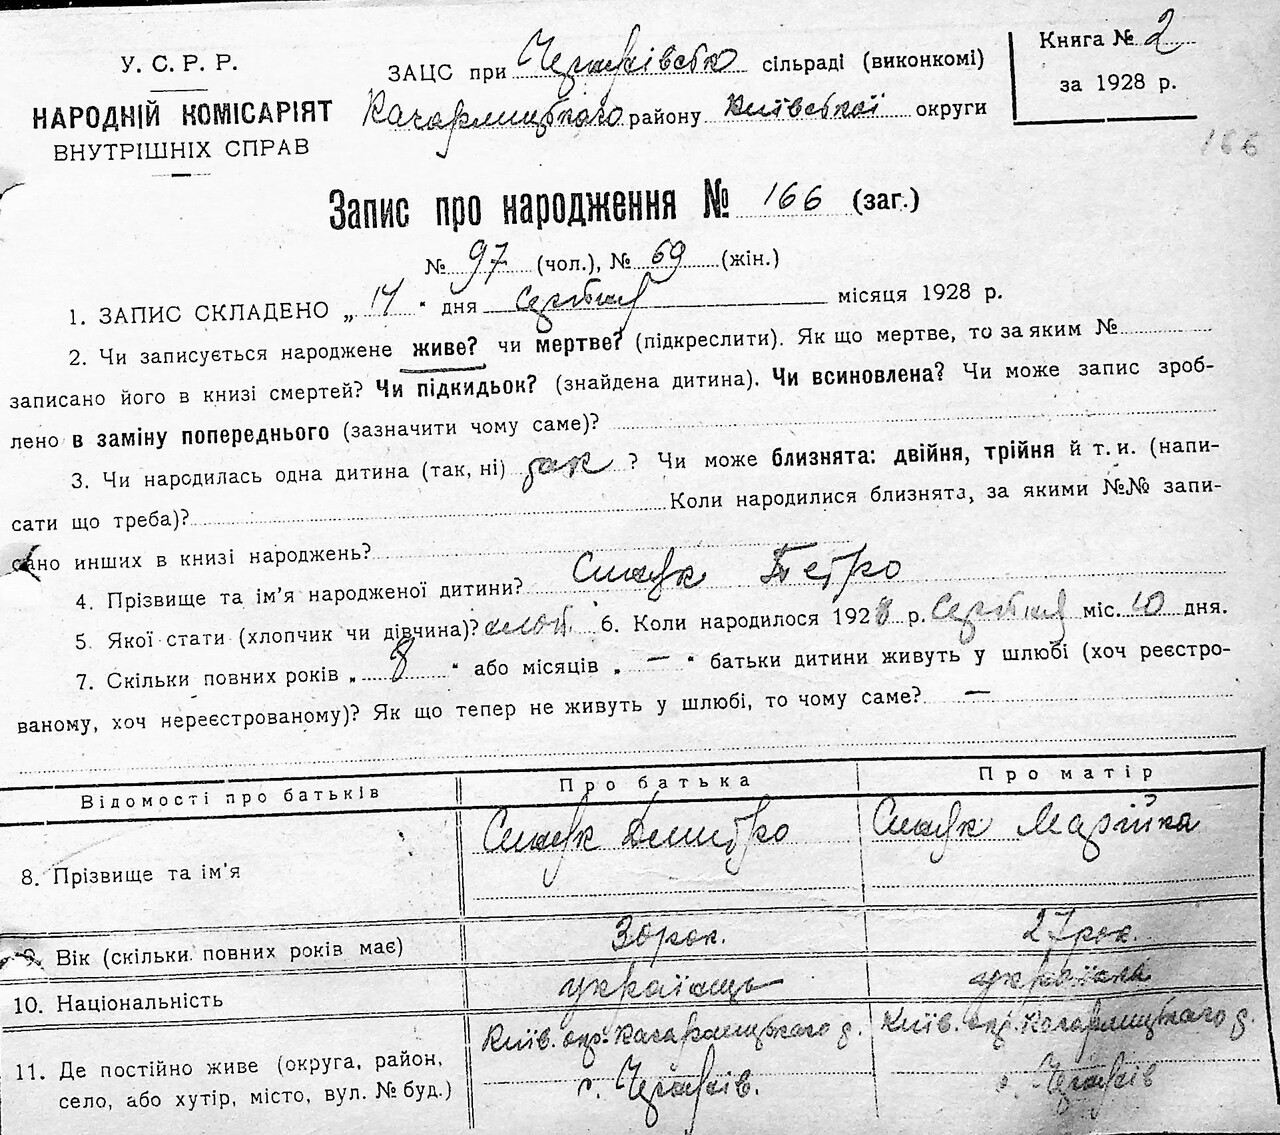 У. С. Р. Р.
НАРОДНІЙ КОМІСАРІЯТ
ВНУТРІШНІХ СПРАВ
ЗАЦС при сільраді (виконкомі)
Кагарлицького району Київської округи
Книга № 2
за 1928 р.
166
Запис про народження № 166 (заг.)
№ 97 (чол.), № 69 (жін.)
1. ЗАПИС СКЛАДЕНО „ 14 " дня Серпня місяця 1928 р.
2. Чи записується народжене живе? чи мертве? (підкреслити). Як що мертве, то за яким №
записано його в книзі смертей? Чи підкидьок? (знайдена дитина). Чи всиновлена? Чи може запис зроб-
лено в заміну попереднього (зазначити чому саме)?
3. Чи народилась одна дитина (так, ні) так ? Чи може близнята: двійня, трійня й т. и. (напи-
сати що треба)? Коли народилися близнята, за якими №№ запи-
сано инших в книзі народжень?
4. Прізвище та ім'я народженої дитини? Петро
5. Якої стати (хлопчик чи дівчина)? 6. Коли народилося 1928 р. Серпня міс. 10 дня.
7. Скільки повних років „ 8 " або місяців „ — " батьки дитини живуть у шлюбі (хоч реєстро-
ваному, хоч нереєстрованому)? Як що тепер не живуть у шлюбі, то чому саме? —
Відомості про батьків Про батька Про матір
8. Прізвище та ім'я Дмитро Марійка
9. Вік (скільки повних років має) 30 рок. 27 рок.
10. Національність українець українка
11. Де постійно живе (округа, район, Київ. окр. Кагарлицького р. Київ. окр. Кагарлицького р.
село, або хутір, місто, вул. № буд.) с. с.